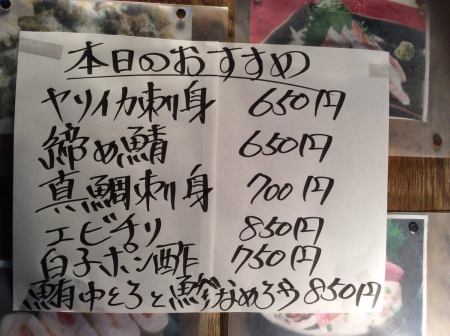 本日のおすすめ
ヤリイカ刺身 650円
締め鯖 650円
真鯛刺身 700円
エビチリ 850円
白子ポン酢 750円
鮪中とろと鯵なめろう 850円